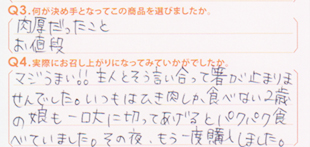 Q3.何が決め手となってこの商品を選びましたか。
肉厚だったこと
お値段
Q4.実際にお召し上がりになってみていかがでしたか。
マジうまい!!主人とそう言い合って箸が止まりま
せんでした。いつもはひき肉しか食べない2歳
の娘も一口大に切ってあげるとパクパク食
べていました。その夜、もう一度購入しました。